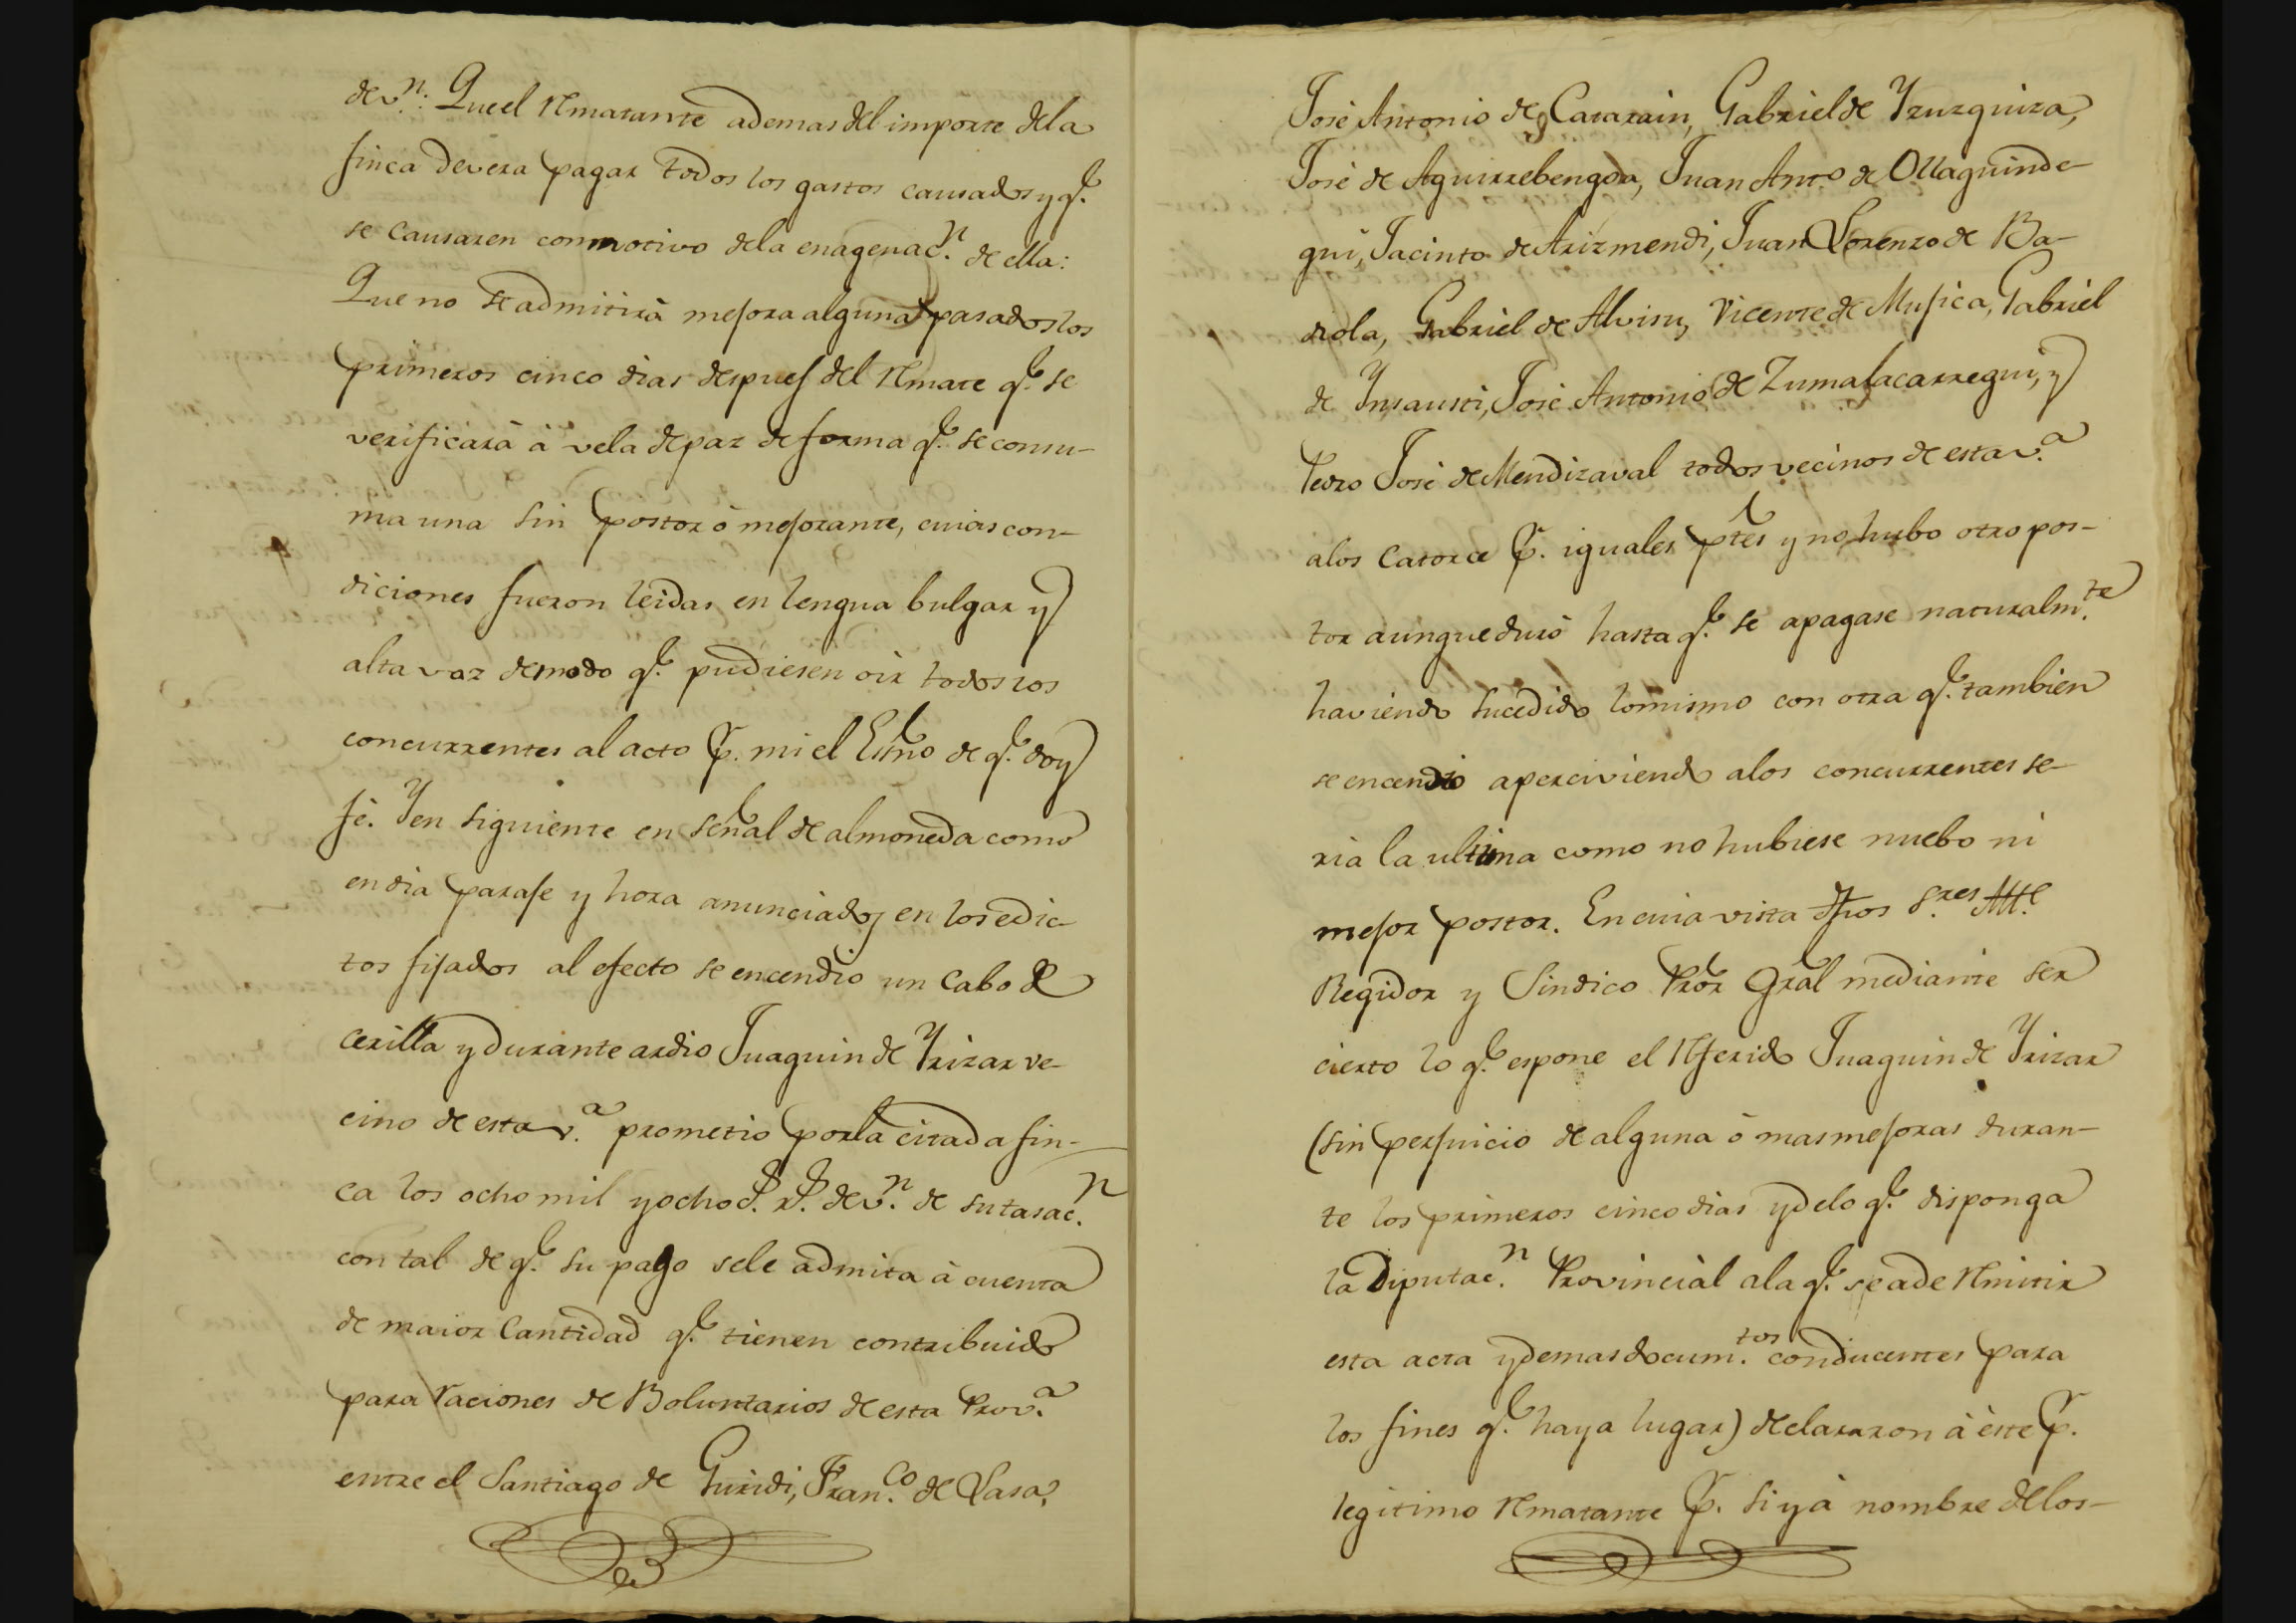 de v.n: Que el rematante ademas del importe dela
finca devera pagar todos los gastos causados y q.e
se causaren con motivo dela enagenac.n de ella:
Que no se admitirà mejora alguna pasados los
primeros cinco dias despues del remate q.e se
verificarà à vela de paz de forma q.e se consu-
ma una sin postor ò mejorante, cuias con-
diciones fueron leidas en lengua bulgar y
alta voz de modo q.e pudiesen oir todos los
concurrentes al acto p.r mi el Essno de q.e doy
fè. Y en siguiente en señal de almoneda como
en dia paraje y hora anunciados en los edic-
tos fijados al efecto se encendio un Cabo de
cerilla y durante ardio Juaquin de Yrizar ve-
cino de esta v.a prometio por la citada fin-
ca los ocho mil y ocho r.s de v.n de su tasac.n
con tal de q.e su pago sele admita à cuenta
de maior Cantidad q.e tienen contribuido
para raciones de Boluntarios de esta Prov.a
entre el Santiago de Guridi, Fran.co de Lasa,
José Antonio de Cararain, Gabriel de Yzurquiza,
José de Aguirrebengoa, Juan Anto de Ollaquinde-
gui, Jacinto de Arizmendi, Juan Lorenzo de Ba-
diola, Gabriel de Alvisu, Vicente de Mujica, Gabriel
de Ynsausti, José Antonio de Zumalacarregui, y
Pedro José de Mendizaval todos vecinos de esta v.a
alos Catorce p.r iguales ptes y no hubo otro pos-
tor aunque durò hasta q.e se apagase naturalm.te
haviendo sucedido lo mismo con otra q.e tambien
se encendio aperciviendo alos concurrentes se-
ria la ultima como no hubiese nuebo ni
mejor postor. En cuia vista dhos S.res Alc.e
Regidor y Sindico Pror Gral mediante ser
cierto lo q.e espone el referido Juaquin de Yrizar
(sin perjuicio de alguna ò mas mejoras duran-
te los primeros cinco dias y de lo q.e disponga
la Diputac.n Provincial ala q.e se a de remitir
esta acta y demas docum.tos conducentes para
los fines q.e haya lugar) declararon à èste p.r
legitimo rematante p.r si y à nombre delos-